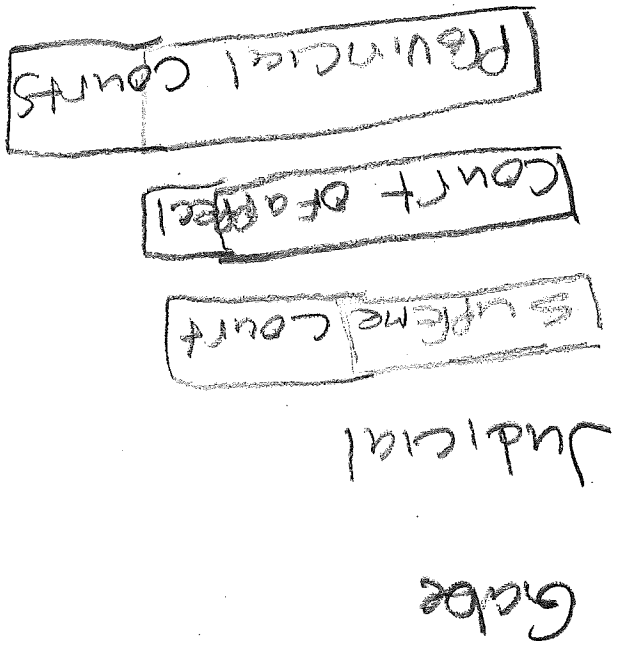 Gabe
Judicial
Supreme court
Court of appeal
Provincial Courts